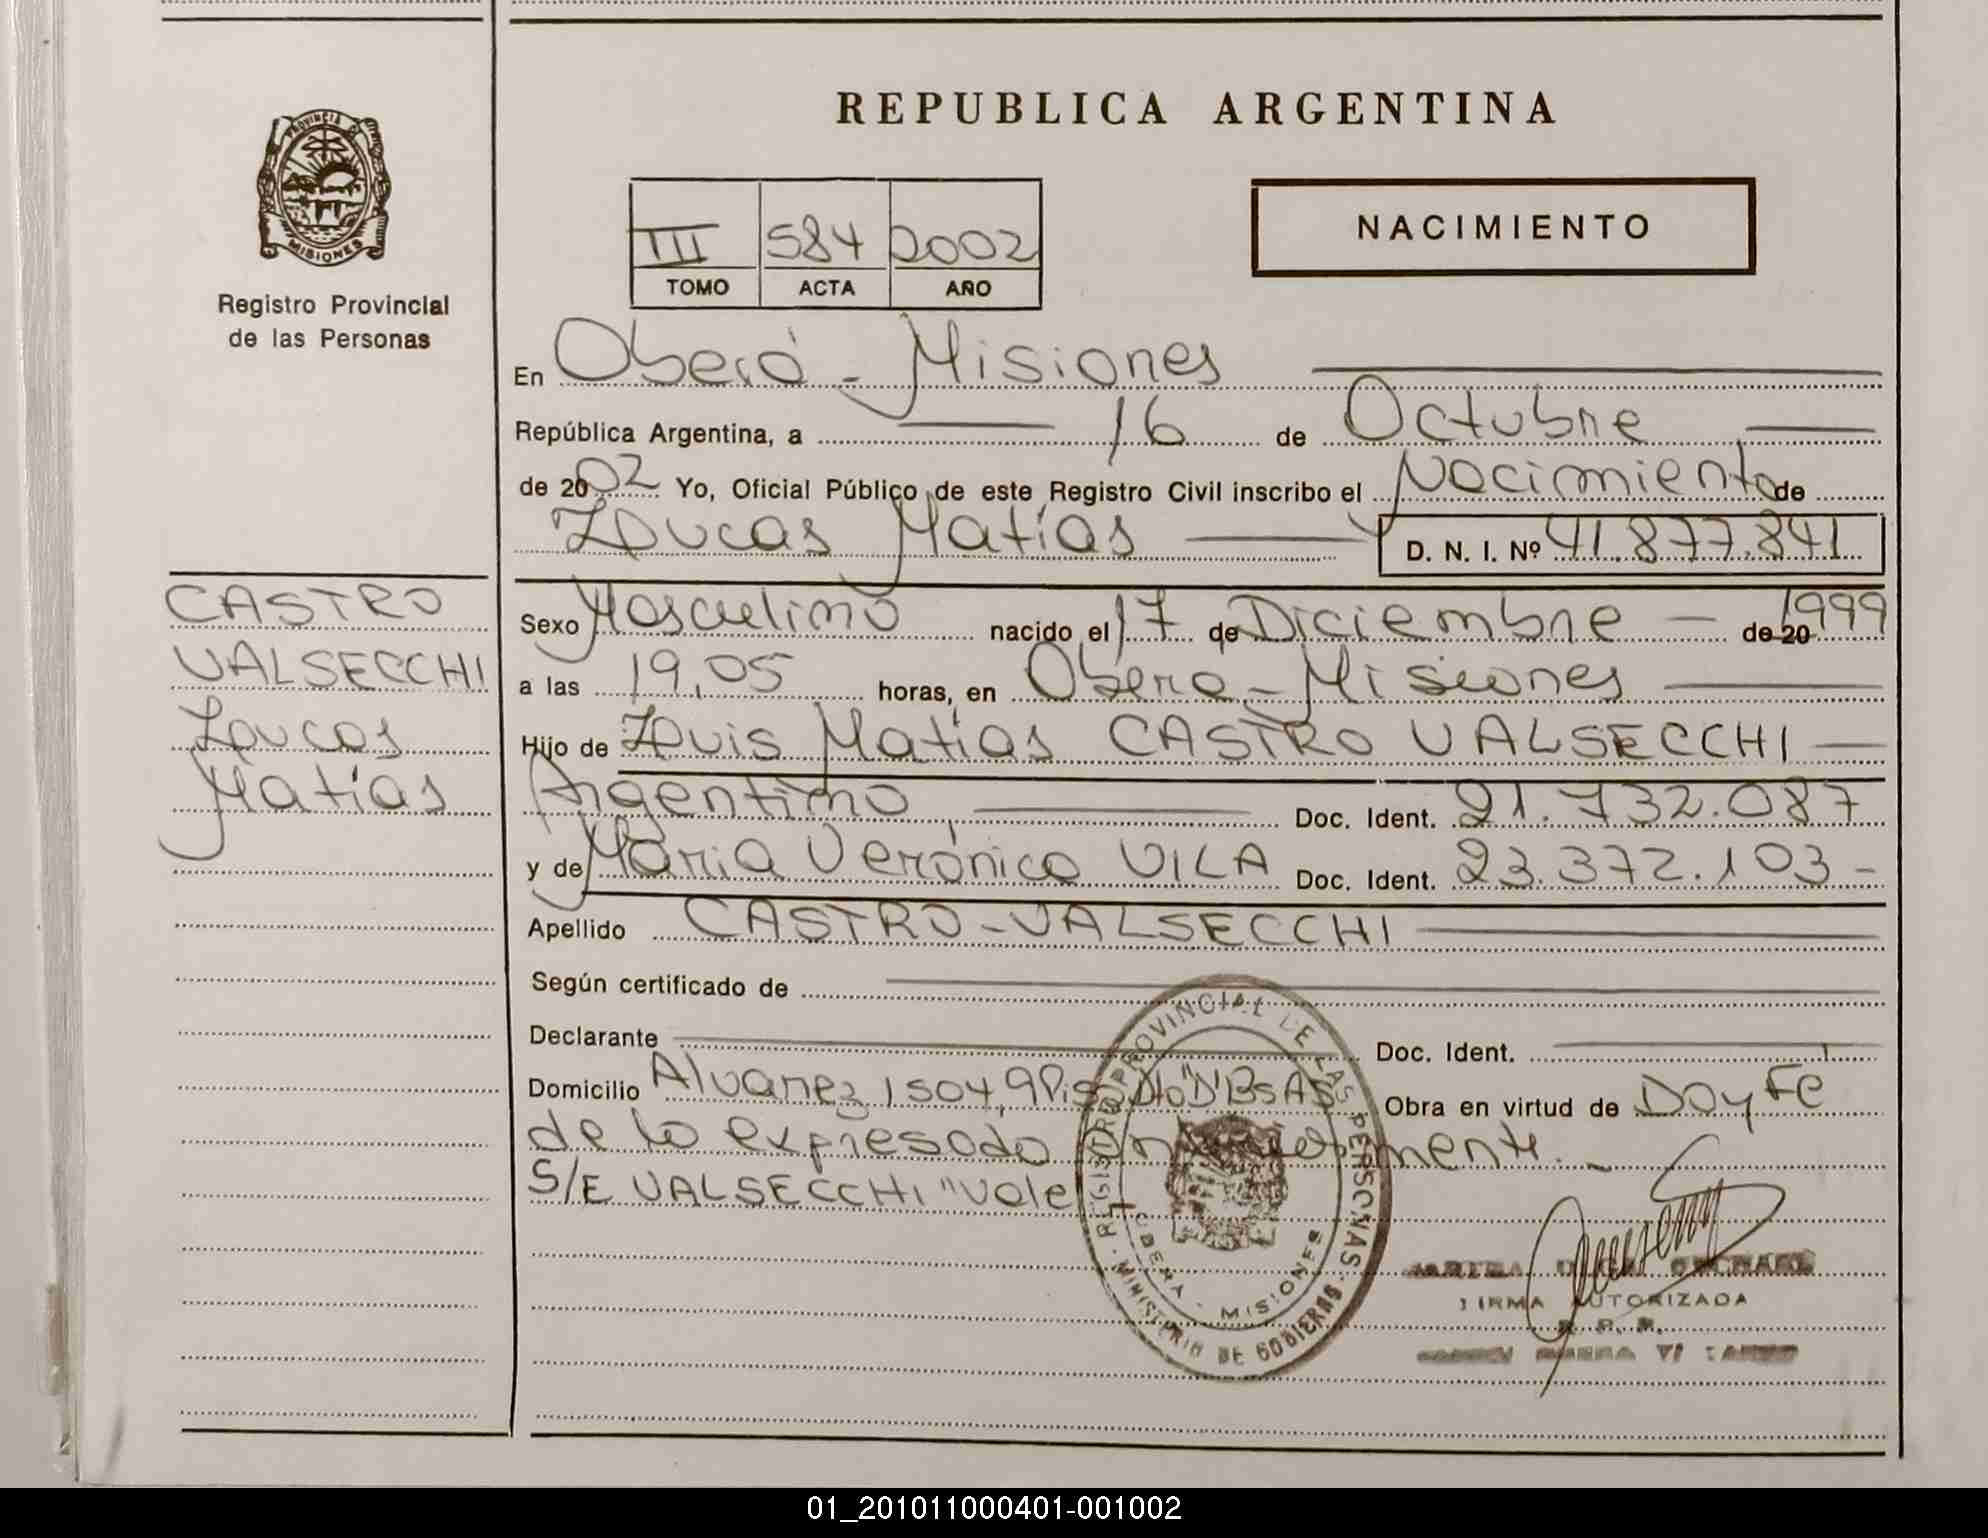 REPUBLICA ARGENTINA
PROVINCIA DE
MISIONES
Registro Provincial
de las Personas
III 584 2002
TOMO ACTA AÑO
NACIMIENTO
En Oberá - Misiones
República Argentina, a 16 de Octubre
de 2002 Yo, Oficial Público de este Registro Civil inscribo el Nacimiento de
Lucas Matías D. N. I. Nº 41.877.841
CASTRO
VALSECCHI
Lucas
Matías
Sexo Masculino nacido el 17 de Diciembre - de 20 1999
a las 19,05 horas, en Oberá - Misiones
Hijo de Luis Matías CASTRO VALSECCHI
Argentino Doc. Ident. 21.732.087
y de María Verónica VILA Doc. Ident. 23.372.103 -
Apellido CASTRO - VALSECCHI
Según certificado de
Declarante Doc. Ident.
Domicilio Alvarez 1504, 9 Piso Dto "D" Bs AS Obra en virtud de Doy Fe
de lo expresado anteriormente. -
S/E VALSECCHI "Vale
REGISTRO PROVINCIAL DE LAS PERSONAS
MINISTERIO DE GOBIERNO
OBERA - MISIONES
FIRMA AUTORIZADA
R. P. P.
01_201011000401-001002